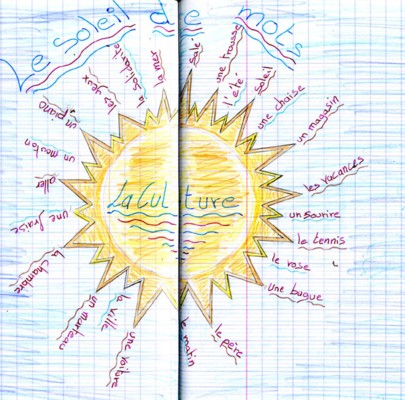 Le Soleil de mots
La Culture
salé
une trousse
l'été
soleil
une chaise
un magasin
les vacances
un sourire
le tennis
le rose
une bague
le père
le matin
une voiture
la ville
un marteau
la chambre
une fraise
aller
un mouton
un piano
les yeux
la solidarité
la mer